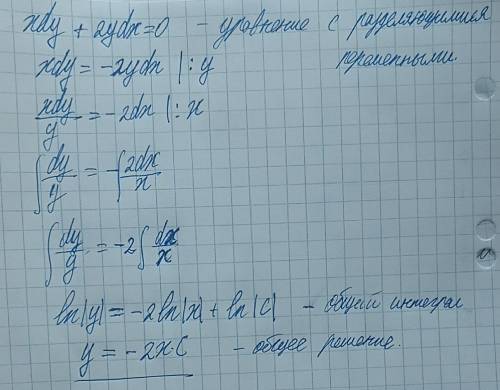 xdy + 2ydx=0 - уравнение с разделяющимися переменными.
xdy = -2ydx |: y
xdy/y = -2dx |: x
∫ dy/y = -∫ 2dx/x
∫ dy/y = -2 ∫ dx/x
ln|y| = -2ln|x| + ln|C| - общий интеграл
y = -2x·C - общее решение.